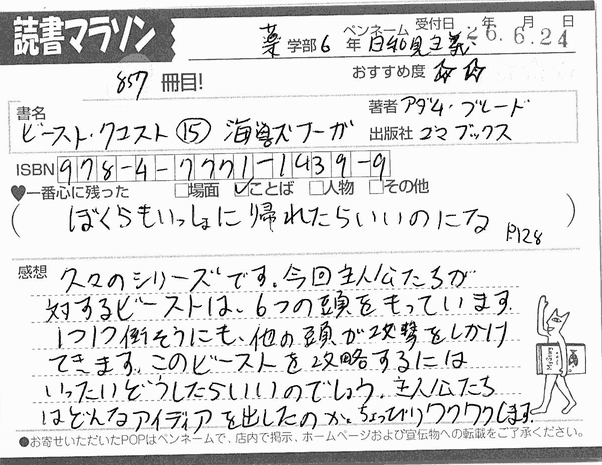 読書マラソン
薬 学部 6 年 ペンネーム 日和見主義 受付日 26年6月24日
857 冊目!
おすすめ度 ☆☆
書名 ビースト・クエスト⑮ 海獣スーガ
著者名 アダム・ブレード
出版社 ゴマブックス
ISBN 978-4-7771-1439-9
♥一番心に残った □場面 ☑ことば □人物 □その他
(ぼくらもいっしょに帰れたらいいのにな P.128)
感想 久々のシリーズです。今回主人公たちが
対するビーストは、6つの頭をもっています。
1つ1つ倒そうにも、他の頭が攻撃をしかけ
てきます。このビーストを攻略するには
いったいどうしたらいいのでしょう。主人公たち
はどんなアイディアを出したのか。ちょっぴりワクワクします。
●お寄せいただいたPOPはペンネームで、店内で掲示、ホームページおよび宣伝物への転載をご了承ください。